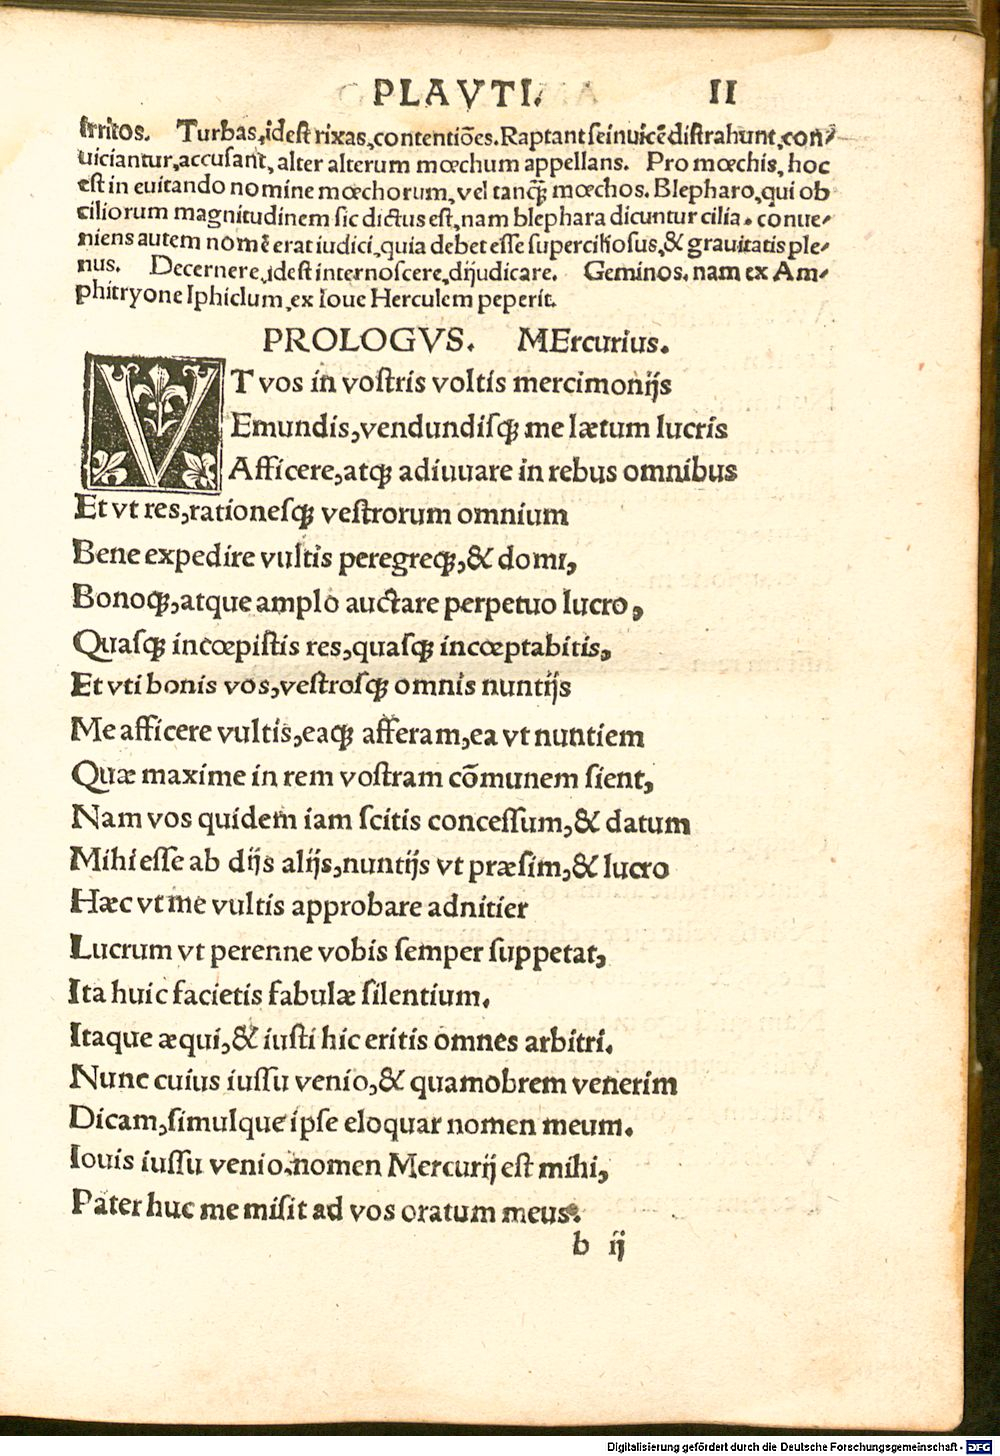 PLAVTI. II
irritos. Turbas, idest rixas, contentiões. Raptant seinuicẽ distrahunt, con-
uiciantur, accusant, alter alterum mœchum appellans. Pro mœchis, hoc
est in euitando nomine mœchorum, vel tanꝙ̃ mœchos. Blepharo, qui ob
ciliorum magnitudinem sic dictus est, nam blephara dicuntur cilia. conue-
niens autem nomẽ erat iudici, quia debet esse superciliosus, & grauitatis ple-
nus. Decernere, idest internoscere, dijudicare. Geminos. nam ex Am-
phitryone Iphiclum, ex Ioue Herculem peperit.
PROLOGVS. MErcurius.
VT vos in vostris voltis mercimonijs
Emundis, vendundisqꝫ me lætum lucris
Afficere, atqꝫ adiuuare in rebus omnibus
Et vt res, rationesqꝫ vestrorum omnium
Bene expedire vultis peregreqꝫ, & domi,
Bonoqꝫ, atque amplo auctare perpetuo lucro,
Quasqꝫ incœpistis res, quasqꝫ incœptabitis,
Et vti bonis vos, vestrosqꝫ omnis nuntijs
Me afficere vultis, eaqꝫ afferam, ea vt nuntiem
Quæ maxime in rem vostram cõmunem sient,
Nam vos quidem iam scitis concessum, & datum
Mihi esse ab dijs alijs, nuntijs vt præsim, & lucro
Hæc vt me vultis approbare adnitier
Lucrum vt perenne vobis semper suppetat,
Ita huic facietis fabulæ silentium.
Itaque æqui, & iusti hic eritis omnes arbitri.
Nunc cuius iussu venio, & quamobrem venerim
Dicam, simulque ipse eloquar nomen meum.
Iouis iussu venio. nomen Mercurij est mihi,
Pater huc me misit ad vos oratum meus.
b ij
Digitalisierung gefördert durch die Deutsche Forschungsgemeinschaft - DFG